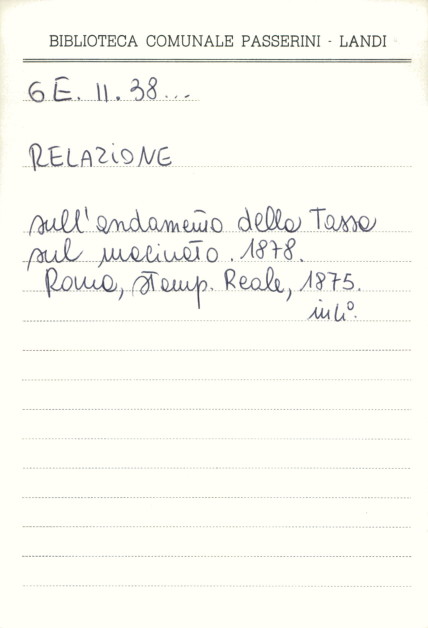 BIBLIOTECA COMUNALE PASSERINI - LANDI
6E. II. 38...
RELAZIONE
sull'andamento della Tassa
sul macinato. 1878.
Roma, Stamp. Reale, 1875.
in 4°.